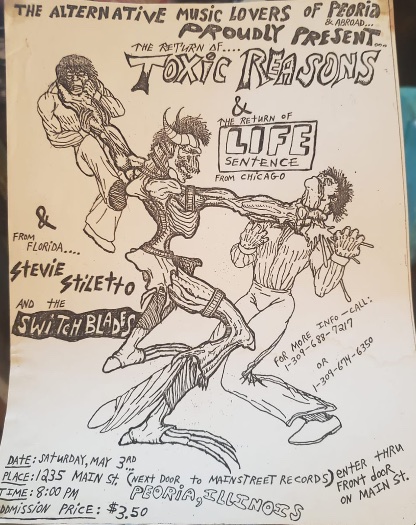 THE ALTERNATIVE MUSIC LOVERS OF PEORIA
& ABROAD...
PROUDLY PRESENT...
THE RETURN OF....
TOXIC REASONS
&
THE RETURN OF
LIFE
SENTENCE
FROM CHICAGO
&
FROM
FLORIDA....
STEVIE STILETTO
AND THE
SWITCHBLADES
FOR MORE INFO-CALL:
1-309-688-7217
OR
1-309-674-6350
DATE: SATURDAY, MAY 3RD
PLACE: 1235 MAIN St. (NEXT DOOR TO MAINSTREET RECORDS)
TIME: 8:00 PM
PEORIA, ILLINOIS
ADMISSION PRICE: $3.50
ENTER THRU
FRONT DOOR
ON MAIN ST.